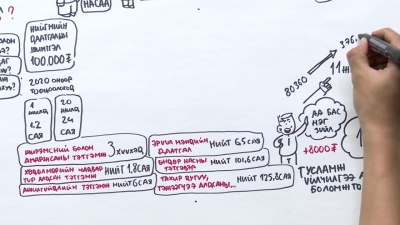 НАСАА
?
НИЙГМИЙН
ДААТГАЛЫН
ШИМТГЭЛ
100.000₮
2020 ОНООР
ТООЦООЛОХОД
1
ЖИЛД
1.2
САЯ
20
ЖИЛД
24
САЯ
ЖИРЭМСНИЙ БОЛОН
АМАРЖСАНЫ ТЭТГЭМЖ
3 ХҮҮХЭД
ХӨДӨЛМӨРИЙН ЧАДВАР
ТҮР АЛДСАН ТЭТГЭМЖ
НИЙТ 1,8 САЯ
АЖИЛГҮЙДЛИЙН ТЭТГЭМЖ НИЙТ 6 САЯ
ЭРҮҮЛ МЭНДИЙН
ДААТГАЛ
НИЙТ 6,5 САЯ
ӨНДӨР НАСНЫ
ТЭТГЭВЭР
НИЙТ 101,6 САЯ
ТАХИР ДУТУУ,
ТЭЖЭЭГЧЭЭ АЛДСАНЫ...
НИЙТ 125,8 САЯ
80360
376.
11
АА БАС
НЭГ
ЗҮЙЛ
+8000₮
ТУСЛАМЖ
ҮЙЛЧИЛГЭЭ А
БОЛОМЖТО